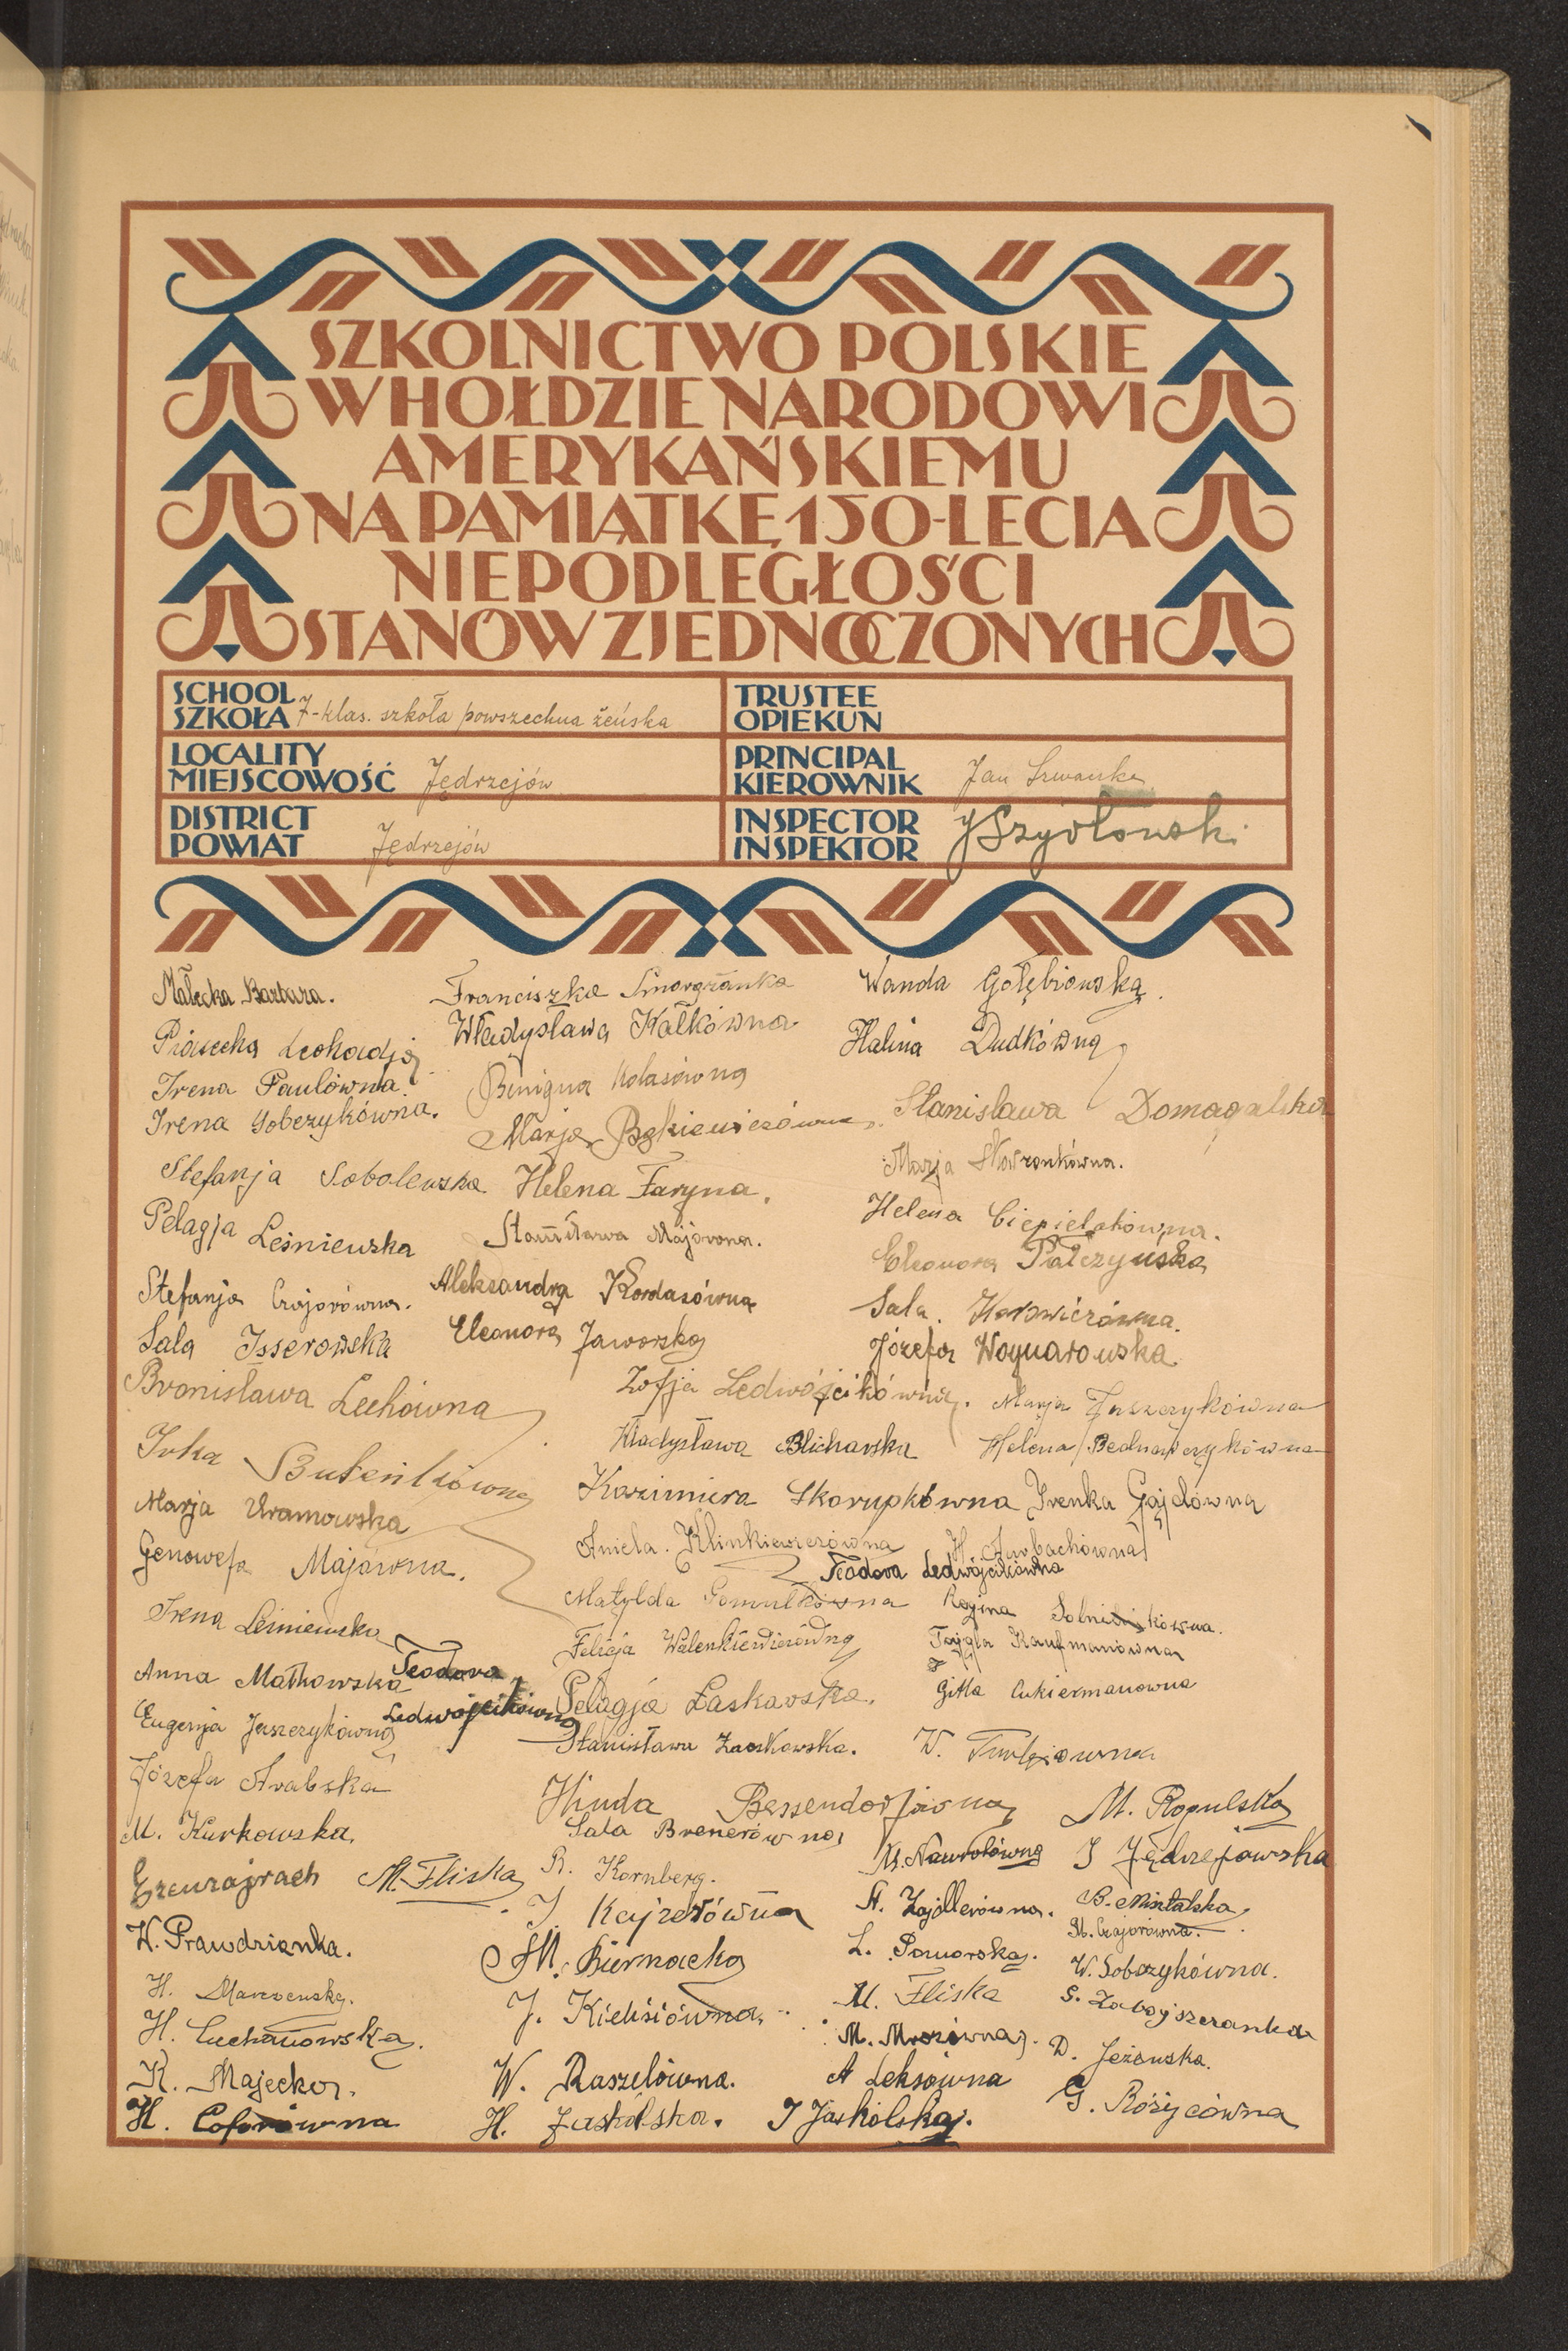 SZKOLNICTWO POLSKIE
W HOŁDZIE NARODOWI
AMERYKAŃSKIEMU
NA PAMIĄTKĘ 150-LECIA
NIEPODLEGŁOŚCI
STANÓW ZJEDNOCZONYCH
SCHOOL
SZKOŁA 7-klas. szkoła powszechna żeńska
TRUSTEE
OPIEKUN
LOCALITY
MIEJSCOWOŚĆ Jędrzejów
PRINCIPAL
KIEROWNIK Jan
DISTRICT
POWIAT Jędrzejów
INSPECTOR
INSPEKTOR J Szydłowski
Małecka Barbara.
Piasecka Leokadja
Irena Paulówna.
Irena Gobczykówna.
Stefanja Sobolewska
Pelagja Leśniewska
Stefanja Czajorówna.
Sala Isserowska
Bronisława Lechówna
Marja Uramowska
Genowefa Majówna.
Irena Leśniewska
Anna Małkowska
Teodora
Ledwójcikówna
Eugenja Jaszczykówna
Józefa Arabska
M. Kurkowska.
M. Fliska
W. Prawdzianka.
H.
H. Cuchanowska.
K. Majecka.
H.
Franciszka Smorążanka
Władysława Kałkówna
Benigna Kolasówna
Marja
Helena Faryna.
Stanisława Majówna.
Aleksandra Kordasówna
Eleonora Jaworska
Zofja Ledwójcikówna.
Władysława Blicharska
Kazimiera Skorupkówna
Aniela. Klinkiewiczówna
Teodora Ledwójcikówna
Matylda Gomułkówna
Felicja Walenkiewiczówna
Pelagja Łaskawska.
Stanisława Zaczkowska.
Hinda Bessendorfówna
Sala Brenerówna
R. Kornberg.
J. Kajzerówna
M. Biernacka
J. Kielisiówna.
W. Raszelówna.
H. Jaskólska.
Wanda Gołębiowska.
Halina Dudkówna
Stanisława Domagalska
Marja Skowronkówna.
Helena Ciepielakówna.
Eleonora Pałczyńska
Sala.
Józefa Woynarowska
Marja Juszczykówna
Helena Bednarczykówna
Irenka Gajdówna
H. Aurbachówna
Regina
Tajgla Kaufmanówna
Gitla Cukiermanowna
W.
M. Rogulska
M. Nawrotówna
J Jędrzejowska
A. Zajdlerówna.
B. Misztalska
L. Pomorska.
M. Czajorówna.
M. Fliska
W. Sobczykówna.
M. Mrozówna.
S.
A Leksówna
D. Jeżowska.
J Jaskólska.
G. Różycówna